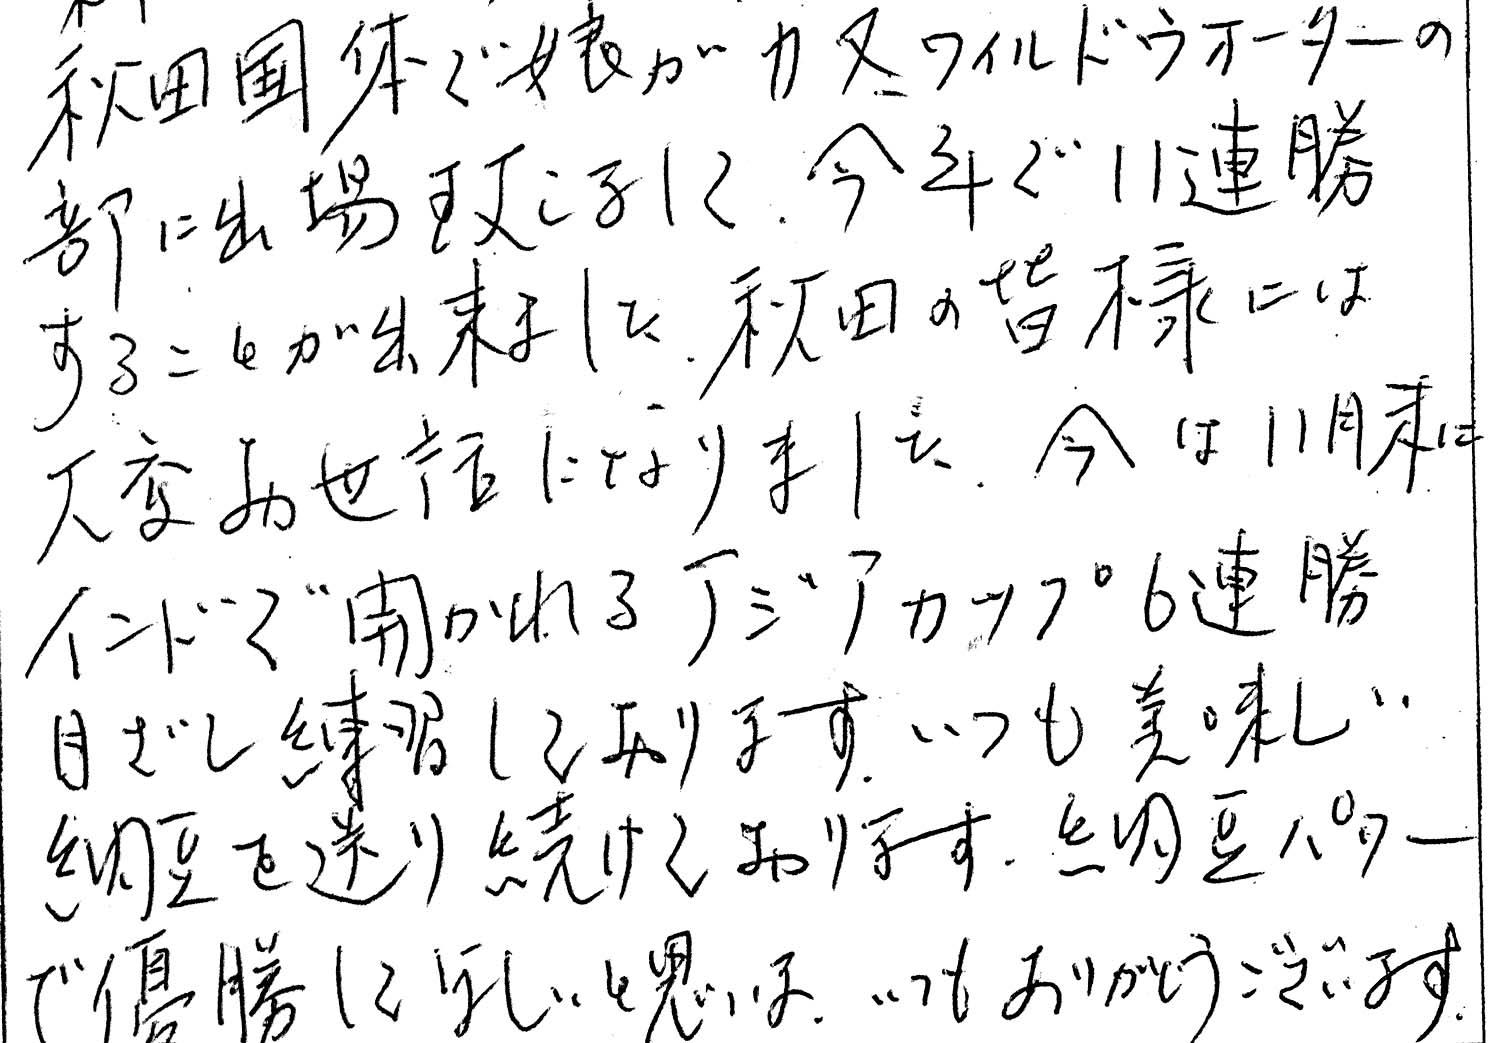 秋田国体で娘がカヌーワイルドウォーターの
部に出場致しまして、今年で11連勝
することが出来ました。秋田の皆様には
大変お世話になりました。今は11月末に
インドで開かれるアジアカップ6連勝
目ざし練習しております。いつも美味しい
納豆を送り続けております。納豆パワー
で優勝してほしいと思います。いつもありがとうございます。